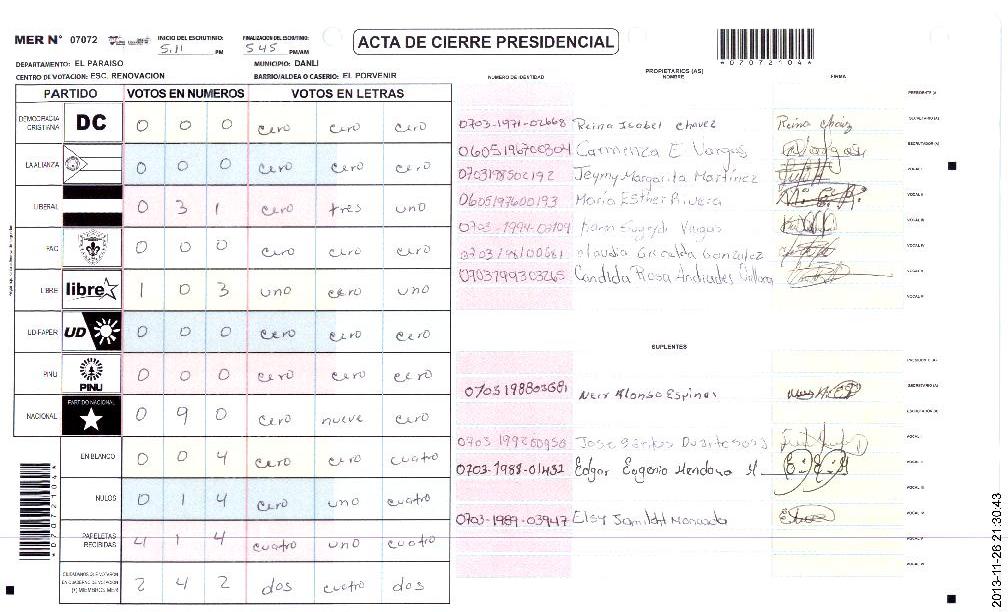 MER Nº 07072 INICIO DEL ESCRUTINIO: 5:11 PM FINALIZACION DEL ESCRUTINIO: 545 PM/AM
ACTA DE CIERRE PRESIDENCIAL
*07072104*
DEPARTAMENTO: EL PARAISO MUNICIPIO: DANLI
CENTRO DE VOTACION: ESC. RENOVACION BARRIO/ALDEA O CASERIO: EL PORVENIR
PARTIDO VOTOS EN NUMEROS VOTOS EN LETRAS
DEMOCRACIA CRISTIANA DC 0 0 0 cero cero cero
LA ALIANZA 0 0 0 cero cero cero
LIBERAL 0 3 1 cero tres uno
PAC 0 0 0 cero cero cero
LIBRE libre 1 0 3 uno cero uno
UD-FAPER UD 0 0 0 cero cero cero
PINU PINU 0 0 0 cero cero cero
NACIONAL PARTIDO NACIONAL 0 9 0 cero nueve cero
EN BLANCO 0 0 4 cero cero cuatro
NULOS 0 1 4 cero uno cuatro
PAPELETAS RECIBIDAS 4 1 4 cuatro uno cuatro
CIUDADANOS QUE VOTARON EN CUADERNO DE VOTACION (+) MIEMBROS MER 2 4 2 dos cuatro dos
*07072104*
PROPIETARIOS (AS)
NUMERO DE IDENTIDAD NOMBRE FIRMA
PRESIDENTE (A)
0703-1971-02668 Reina Isabel chavez Reina chavez SECRETARIO (A)
0605196700304 Carmenza E Vargas ESCRUTADOR (A)
0703198502192 Jeymy Margarita Martínez VOCAL I
0605197600193 Maria Esther Rivera VOCAL II
0703-1994-03109 Karen Vargas VOCAL III
0703198100681 Claudia Griselda Gonzalez VOCAL IV
0703799303265 Candida Rosa VOCAL V
VOCAL VI
SUPLENTES
PRESIDENTE (A)
0703198803681 Nerx Alonso Espinal SECRETARIO (A)
ESCRUTADOR (A)
0703 199200958 Jose Duarte VOCAL I
0703-1988-01432 Edgar Eugenio Mendoza M. E.E.M VOCAL II
0703-1989-03947 Elsy VOCAL IV
VOCAL V
VOCAL VI
2013-11-26 21:30:43